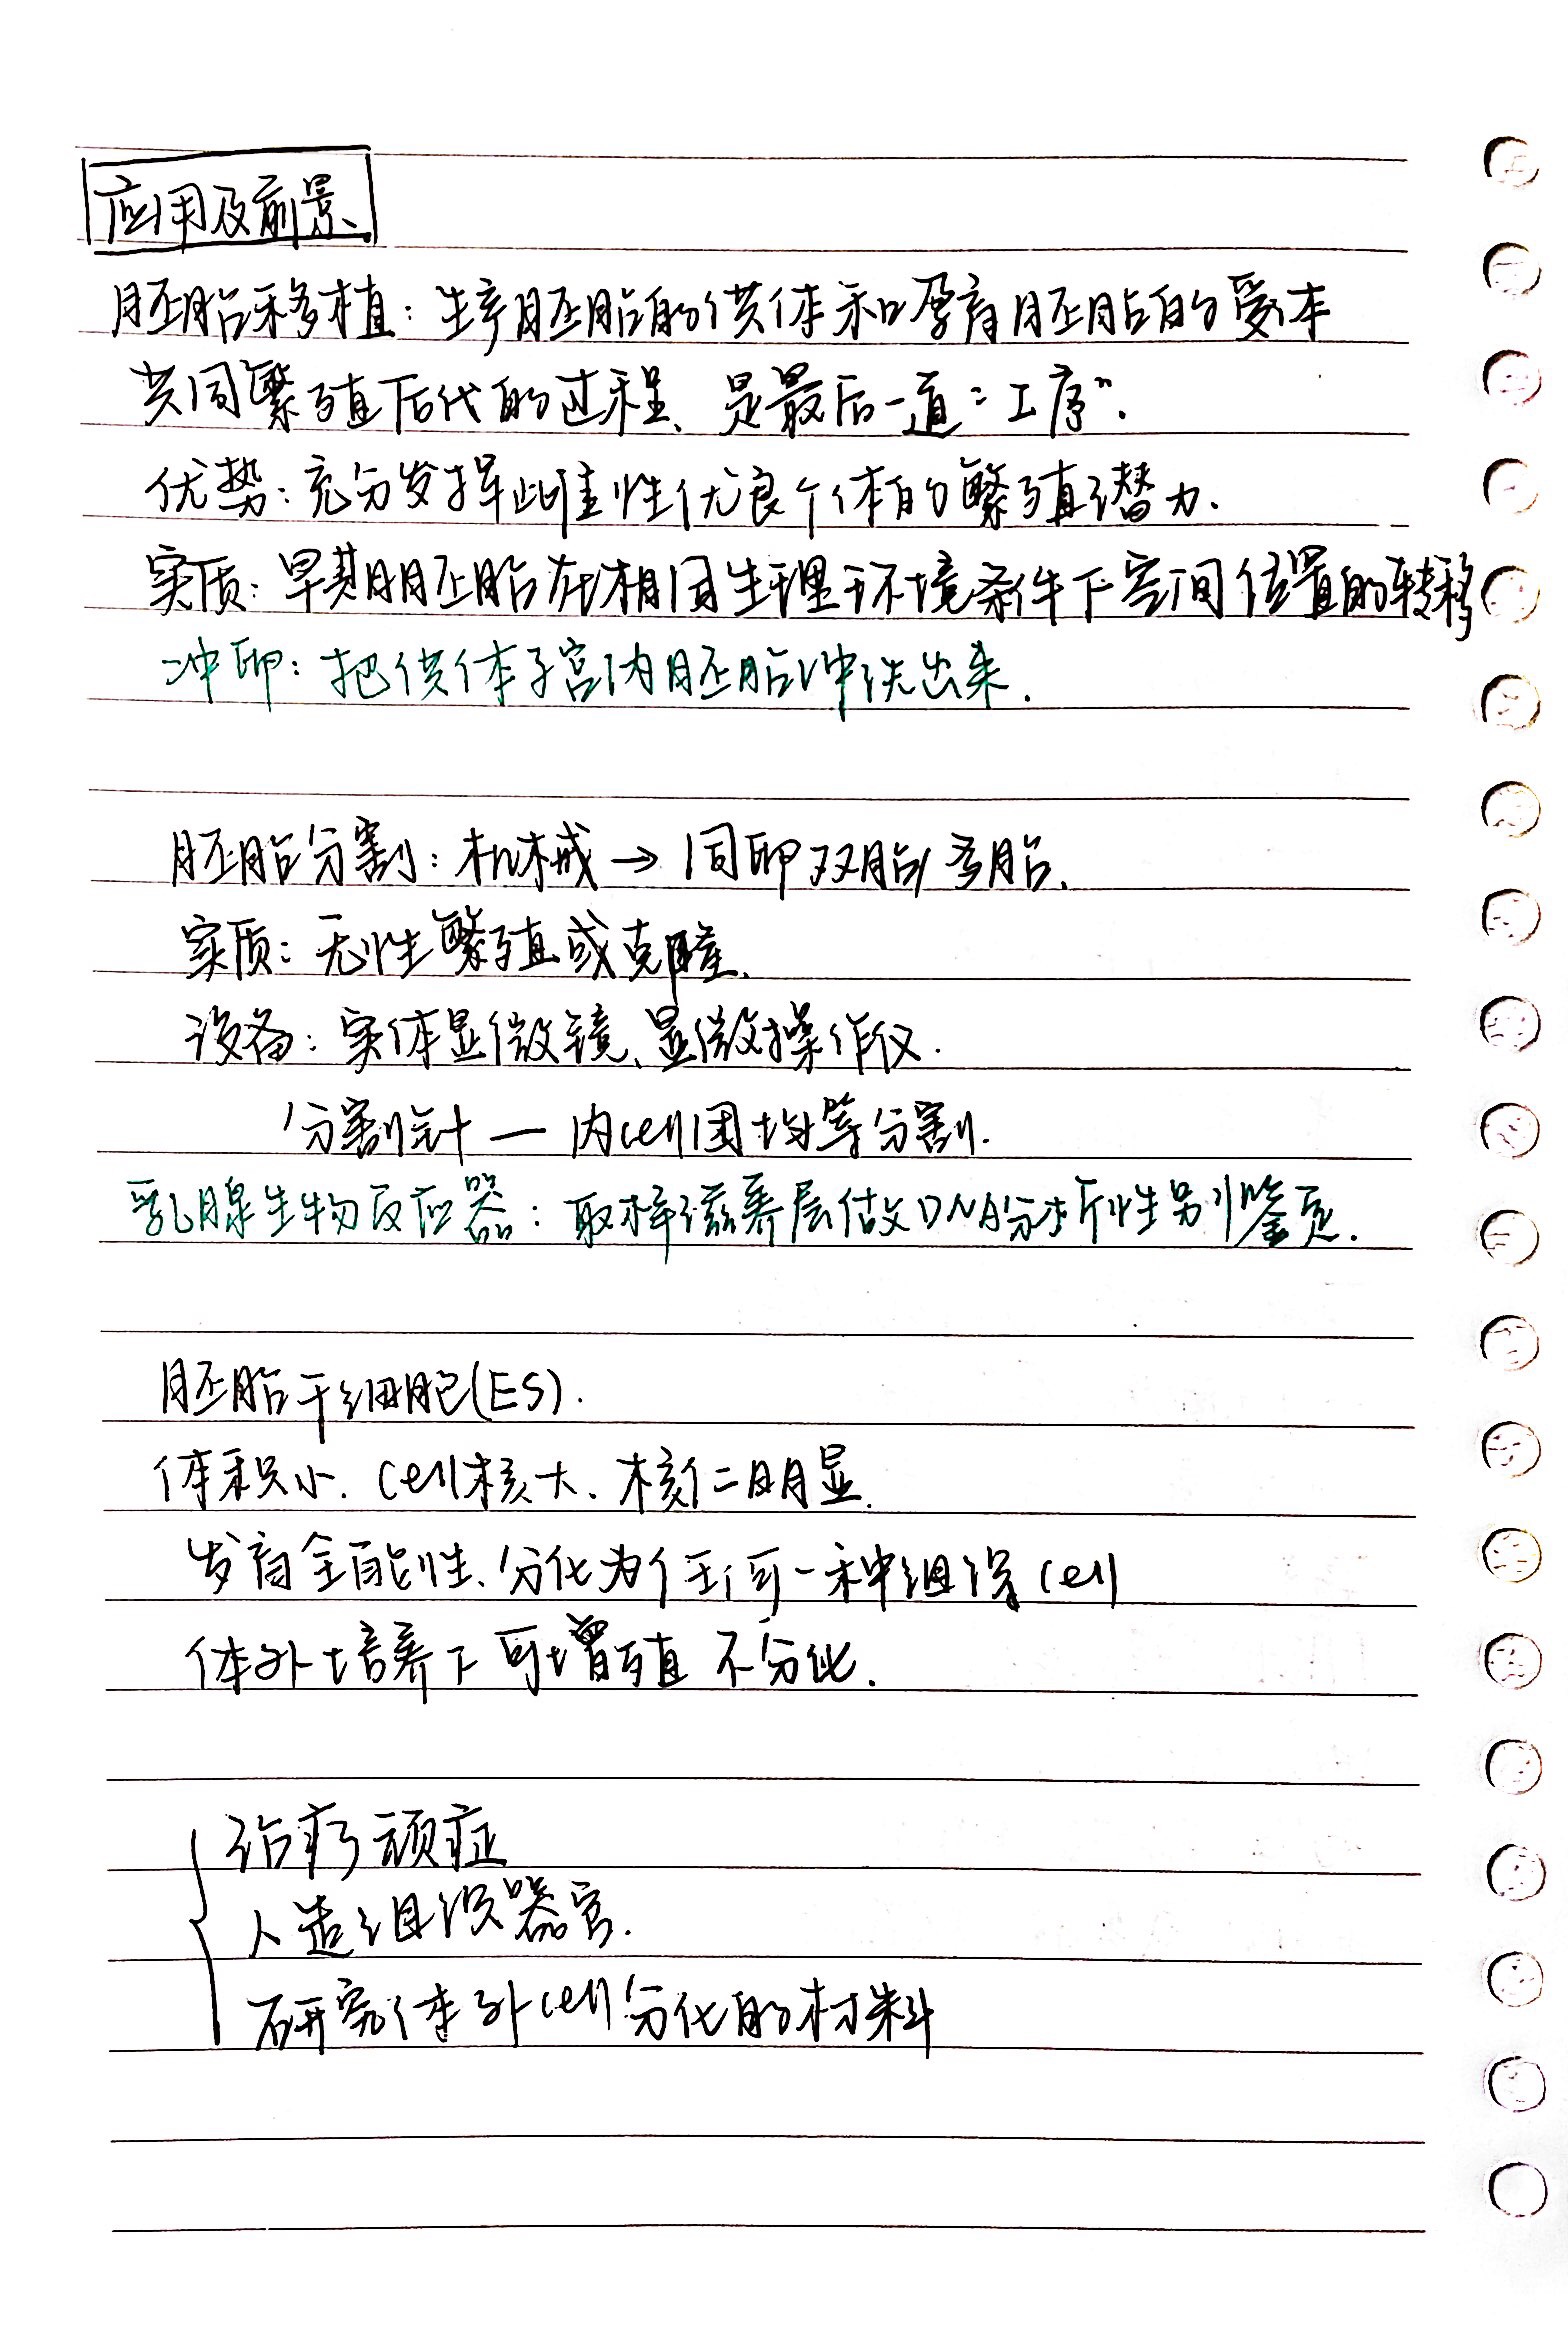 应用及前景
胚胎移植：生产胚胎的供体和孕育胚胎的受体
共同繁殖后代的过程、是最后一道“工序”.
优势：充分发挥雌性优良个体的繁殖潜力.
实质：早期胚胎在相同生理环境条件下空间位置的转移
冲卵：把供体子宫内胚胎冲洗出来.
胚胎分割：机械→同卵双胎/多胎.
实质：无性繁殖或克隆.
设备：实体显微镜、显微操作仪.
分割针—内cell团均等分割.
乳腺生物反应器：取样滋养层做DNA分析性别鉴定.
胚胎干细胞(ES).
体积小. cell核大. 核仁明显.
发育全能性、分化为任何一种组织cell
体外培养下可增殖 不分化.
治疗顽症
人造组织器官.
研究体外cell分化的材料